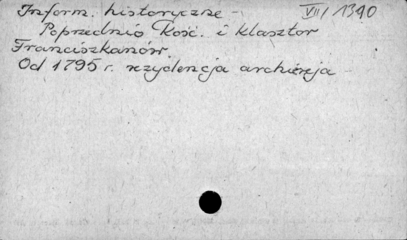 Inform. historyczne - VII/1340
Poprzednio Kość. i klasztor
Franciszkanów.
Od 1795 r. rezydencja archiereja